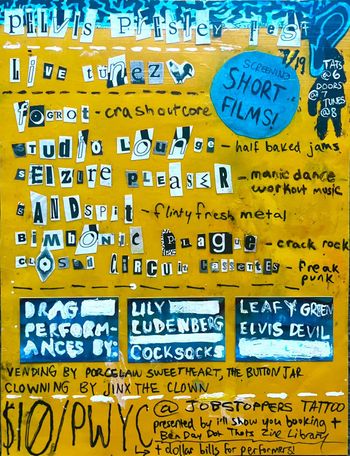 PELVIS PRISLEY FEST
LIVE TUNEZ
7/19
SCREENING
SHORT
FILMS!
TATS
@ 6
DOORS
@ 7
TUNES
@ 8
FOGROT - crashoutcore
STUDIO LOUNGE - half baked jams
SEIZURE PLEASER - manic dance
workout music
SANDSPIT - flinty fresh metal
BIMBONIC PLAGUE - crack rock
CLOSED CIRCUIT CASSETTES - freak
punk
DRAG
PERFORM-
ANCES BY:
LILY
LUDENBERG
COCKSOCKS
LEAFY GREEN
ELVIS DEVIL
VENDING BY PORCELAIN SWEETHEART, THE BUTTON JAR
CLOWNING BY JINX THE CLOWN
$10/PWYC
@ JOBSTOPPERS TATTOO
presented by i'll show you booking +
Ban Day Dot Thots Zine Library
↳ + dollar bills for performers!